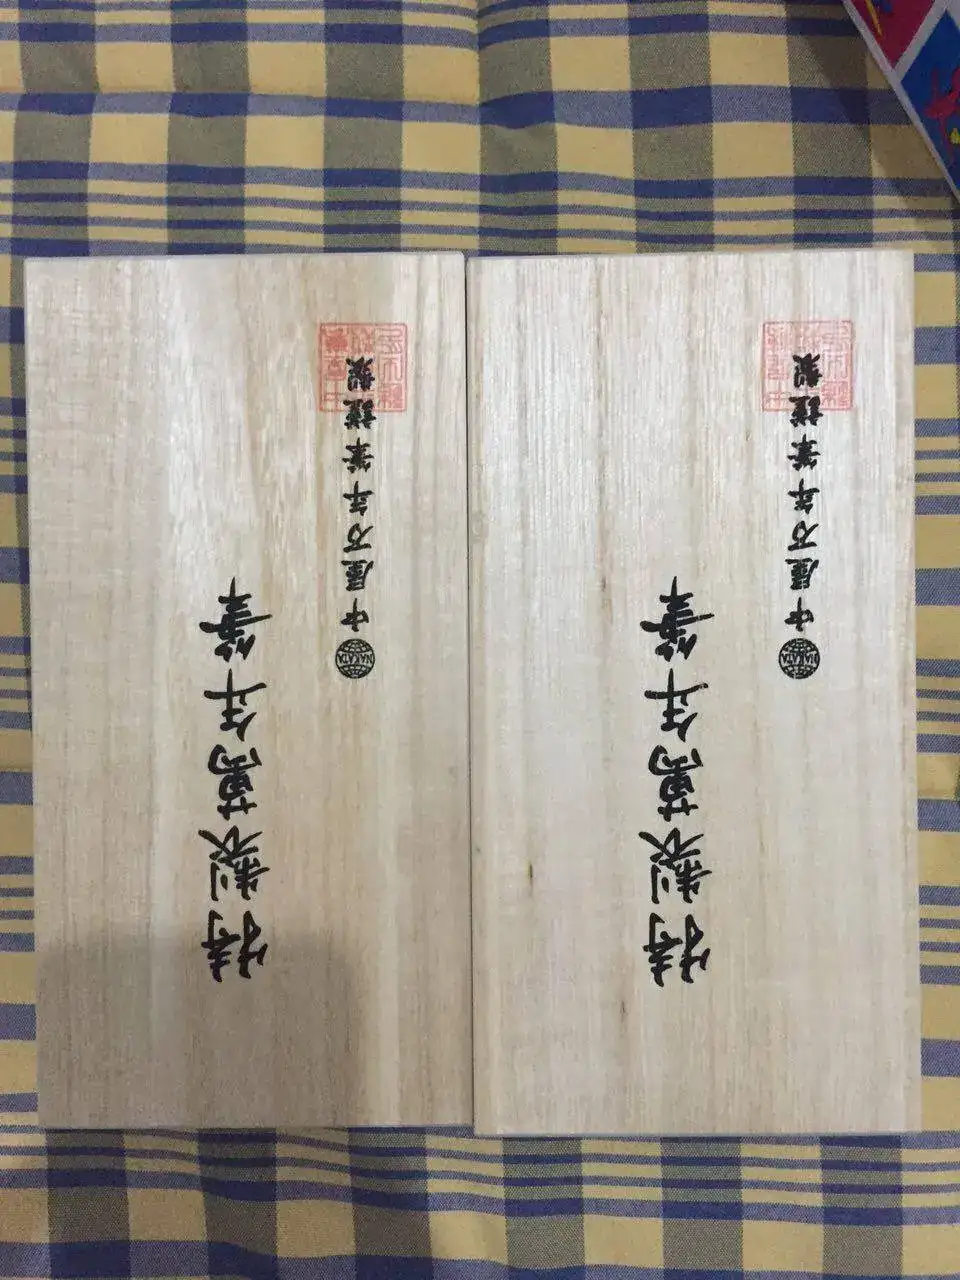 特製萬年筆
NAKATA
中屋万年筆謹製
特製萬年筆
NAKATA
中屋万年筆謹製